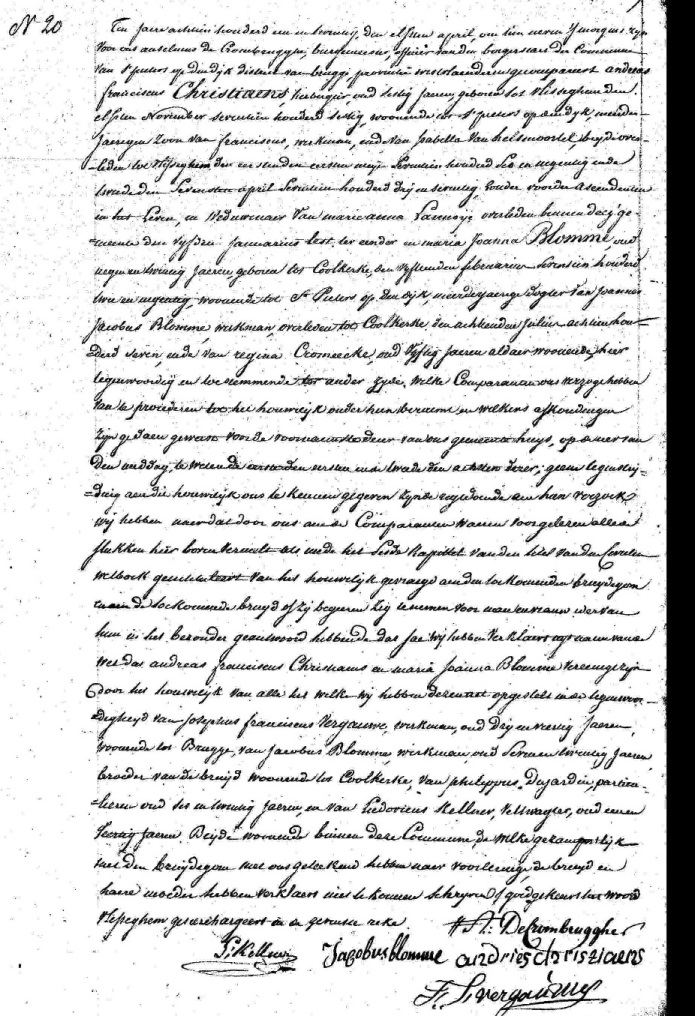 N 20
Ten jaere achtien honderd een en twintig, den elfsten april, om tien ueren 's morgens zyn
voor ons anselmus de Crombrugghe, burgemeester, officier van den borgerstaet der Commune
van St pieters op den dijk district van brugge, provintie westvlaenderen gecompareert andreas
franciscus Christiaens, oud sestig jaeren geboren tot Vlisseghem den
elfsten November seventien honderd sestig, woonende tot St pieters op den dyk meerder
jaerigen Zoon van franciscus, werkman, ende van Isabella Van helsmoortel beyde over-
leden tot Vlisseghem den eersten den eersten meij Seventien honderd Ses en negentig ende
twede den Sevensten april Seventien honderd drij en tseventig Zonder voorders Ascendenten
in het Leven, en Weduwnaer Van marie anna overleden binnen deze ge-
meente den vyfden Januarius lest, ter eender en maria Joanna Blomme, oud
negen en twintig Jaeren, geboren tot Coolkerke, den vyfthienden februarius Seventien honderd
twe en negentig, woonende tot St Pieters op den dijk, meerderjaerige dogter van Joannes
Jacobus Blomme, werkman, overleden tot Coolkerke den achtienden Julius achtien hon-
derd Seven, ende van regina Cromeecke, oud Vyftig Jaeren aldaer woonende, hier
tegenwoordig en toestemmende ter ander zyde, welke Comparanten ons verzogt hebben
van te procederen tot het houwelijk onder hun beraemt en welkers afkondigingen
zijn gedaen geweest voor de voornaemste deur van ons gemeente huys, op d'uer van
den middag, te weten de eerste den eersten en de twede den achsten dezer; geene tegenstrij-
dinge aen die houwelijk ons te kennen gegeven zynde regtdoende aen hun verzoek
wij hebben naer dat door ons aen de Comparanten waeren voorgelezen alle de
stukken hier boven vermelt als mede het Sesde Kapittel van den titel van den Civielen
wetboek geintituleert Van het houwelijk gevraegd aen den toekomenden bruydegom
en aen de toekomende bruyd of zij begeren zig te nemen voor man en vrauw ider van
hun in het bezonder geantwoord hebbende dat Jae wij hebben verklaert uyt naeme van de
Wet dat andreas franciscus Christiaens en maria Joanna Blomme vereenigt zijn
door het houwelijk van alle het welke wij hebben dezen act opgestelt in de tegenwoor-
digheyd van Josephus franciscus Vergauwe, werkman, oud Drij en viertig Jaeren,
woonende tot Brugge, van Jacobus Blomme, werkman oud Seven en twintig Jaeren,
broeder van de bruyd woonende tot Coolkerke, van philippus Dujardin, particu-
lieren oud Ses en twintig jaeren, en van Ludovicus Kellner, Veltwagter, oud een en
Jaeren Beijde woonende binnen deze Commune, de welke gezamentlijk
met den bruydegom met ons geteekend hebben naer voorlezinge de bruyd en
haere moeder hebben verklaert niet te konnen schryven / goedgekeurt het woord
Vlisseghem gesurchargeert in de 
A: DeCrombrugghe
L: Kellner Jacobus blomme andries christiaens
F. J. vergauwe